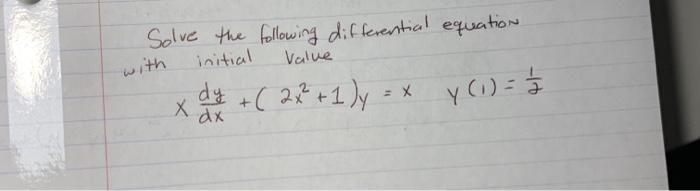 Solve the following differential equation
with initial value
x dy/dx + (2x² + 1)y = x y(1) = 1/2